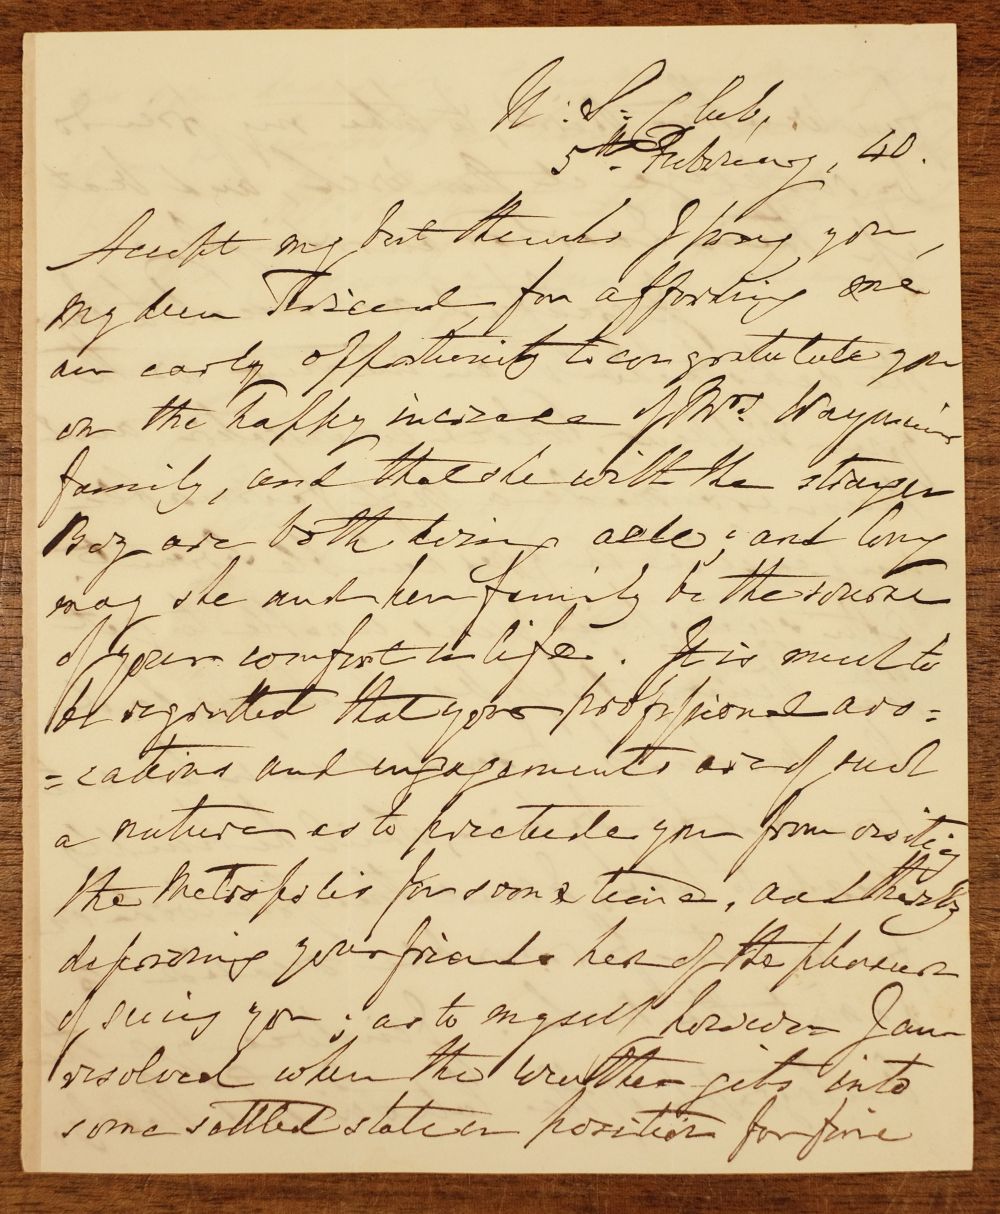 U: S: Club,
5th February, 40.
Accept my best thanks I pray you,
my dear for affording me
an early opportunity to congratulate you
on the happy increase of Mrs. Waymouth's
family, and that she with the stranger
Boy are both doing well; and long
may she and her family be the source
of your comfort in life. It is much to
be regretted that your professional avo=
=cations and engagements are of such
a nature as to preclude you from visiting
the Metropolis for some time, and thereby
depriving your friends here of the pleasure
of seeing you; as to myself however I am
resolved when the weather gets into
some settled state or position for fine